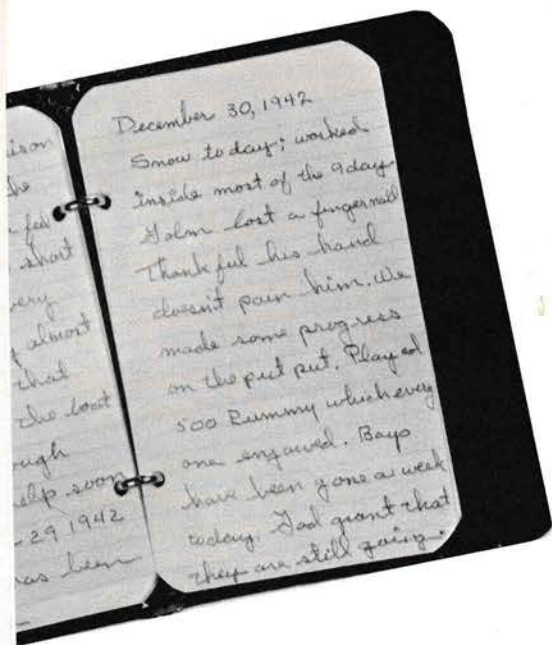 ison
the
short
very
almost
that
the boat
ough
elp soon
29 1942
as been
December 30, 1942
Snow today; worked
inside most of the day.
lost a fingernail
Thankful his hand
doesn't pain him. We
made some progress
on the put put. Played
500 Rummy which every
one enjoyed. Boys
have been gone a week
today. God grant that
they are still going.